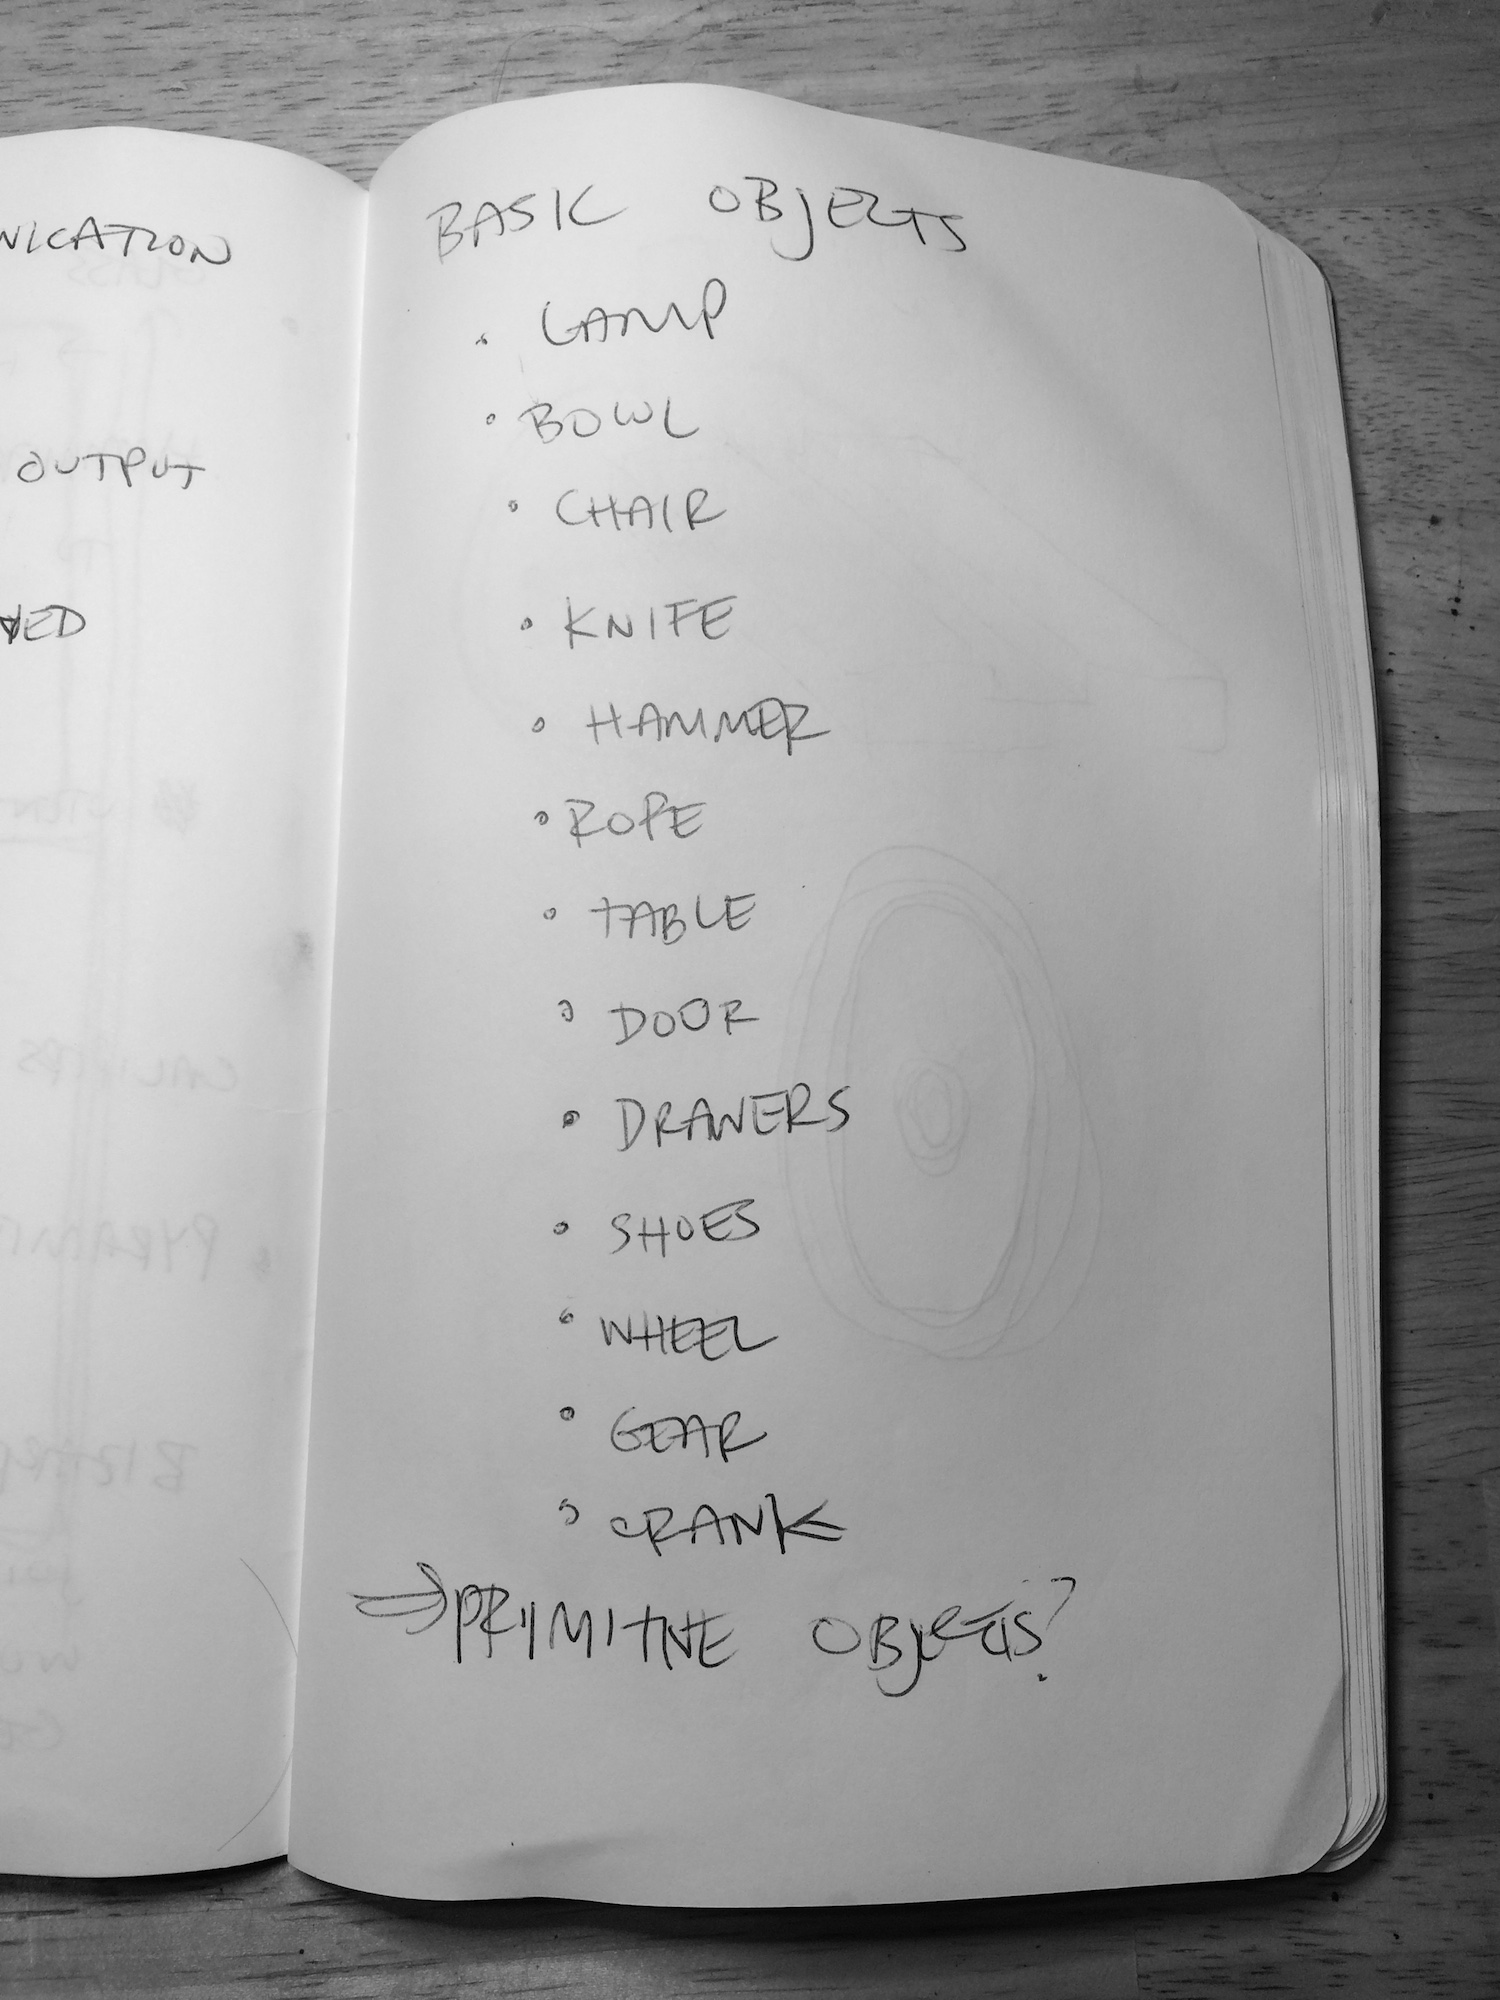 NICATION
OUTPUT
BASIC OBJECTS
• LAMP
• BOWL
• CHAIR
• KNIFE
• HAMMER
• ROPE
• TABLE
• DOOR
• DRAWERS
• SHOES
• WHEEL
• GEAR
• CRANK
⇒ PRIMITIVE OBJECTS?